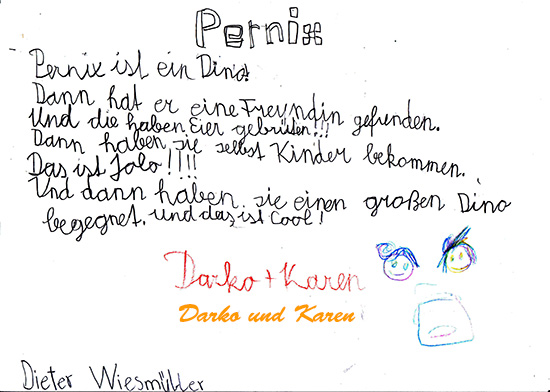 Pernix
Pernix ist ein Dino!
Dann hat er eine Freundin gefunden.
Und die haben Eier gebrüten!!!
Dann haben sie selbst Kinder bekommen.
Das ist Jolo!!!!!
Und dann haben sie einen großen Dino
begegnet. und das ist Cool!
Darko + Karen
Darko und Karen
Dieter Wiesmüller